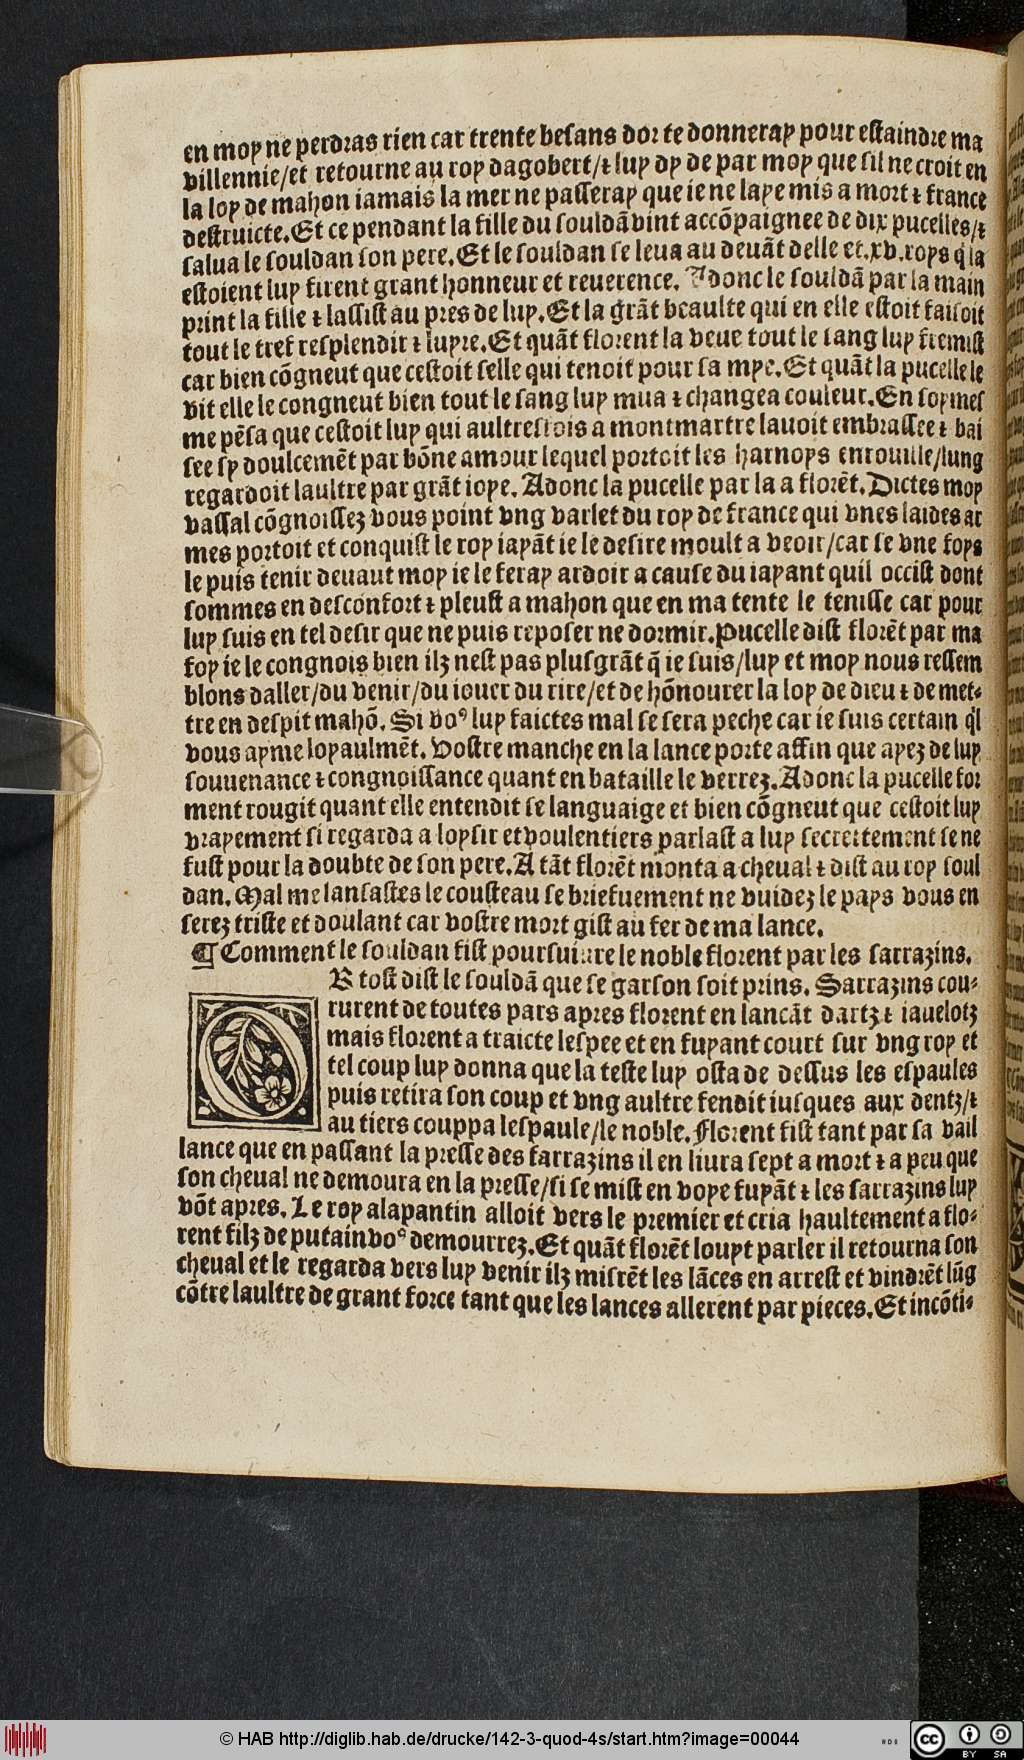 en moy ne perdras rien car trente besans dor te donneray pour estaindre ma
villennie/et retourne au roy dagobert/⁊ luy dy de par moy que sil ne croit en
la loy de mahon iamais la mer ne passeray que ie ne laye mis a mort ⁊ france
destruicte. Et ce pendant la fille du souldā vint accōpaignee de dix pucelles/⁊
salua le souldan son pere. Et le souldan se leua au deuāt delle et .xv. roys q̄ la
estoient luy firent grant honneur et reuerence. Adonc le souldā par la main
print la fille ⁊ lassist au pres de luy. Et la grāt beaulte qui en elle estoit faisoit
tout le tref resplendir ⁊ luyre. Et quāt florent la veue tout le sang luy fremist
car bien cōgneut que cestoit selle qui tenoit pour sa mye. Et quāt la pucelle le
vit elle le congneut bien tout le sang luy mua ⁊ changea couleur. En soymes
me pēsa que cestoit luy qui aultresfois a montmartre lauoit embrassee ⁊ bai
see sy doulcemēt par bōne amour lequel portoit les harnoys enrouille/lung
regardoit laultre par grāt ioye. Adonc la pucelle parla a florēt. Dictes moy
vassal cōgnoissez vous point vng varlet du roy de france qui vnes laides ar
mes portoit et conquist le roy iayāt ie le desire moult a veoir/car se vne foys
le puis tenir deuaut moy ie le feray ardoir a cause du iayant quil occist dont
sommes en desconfort ⁊ pleust a mahon que en ma tente le tenisse car pour
luy suis en tel desir que ne puis reposer ne dormir. Pucelle dist florēt par ma
foy ie le congnois bien ilz nest pas plus grāt q̄ ie suis/luy et moy nous ressem
blons daller/du venir/du iouer du rire/et de hōnourer la loy de dieu ⁊ de met-
tre en despit mahō. Si voꝰ luy faictes mal se sera peche car ie suis certain q̄l
vous ayme loyaulmēt. Vostre manche en la lance porte affin que ayez de luy
souuenance ⁊ congnoissance quant en bataille le verrez. Adonc la pucelle for
ment rougit quant elle entendit se languaige et bien cōgneut que cestoit luy
vrayement si regarda a loysir et voulentiers parlast a luy secrettement se ne
fust pour la doubte de son pere. A tāt florēt monta a cheual ⁊ dist au roy soul
dan. Mal me lansastes le cousteau se briefuement ne vuidez le pays vous en
serez triste et doulant car vostre mort gist au fer de ma lance.
¶ Comment le souldan fist poursuiure le noble florent par les sarrazins.
OR tost dist le souldā que se garson soit prins. Sarrazins cou-
rurent de toutes pars apres florent en lancāt dartz ⁊ iauelotz
mais florent a traicte lespee et en fuyant court sur vng roy et
tel coup luy donna que la teste luy osta de dessus les espaules
puis retira son coup et vng aultre fendit iusques aux dentz/⁊
au tiers couppa lespaule/le noble. Florent fist tant par sa vail
lance que en passant la presse des sarrazins il en liura sept a mort ⁊ a peu que
son cheual ne demoura en la presse/si se mist en voye fuyāt ⁊ les sarrazins luy
vōt apres. Le roy alapantin alloit vers le premier et cria haultement a flo-
rent filz de putain voꝰ demourrez. Et quāt florēt louyt parler il retourna son
cheual et le regarda vers luy venir ilz misrēt les lāces en arrest et vindrēt lūg
cōtre laultre de grant force tant que les lances allerent par pieces. Et incōti-
© HAB http://diglib.hab.de/drucke/142-3-quod-4s/start.htm?image=00044
cc BY SA